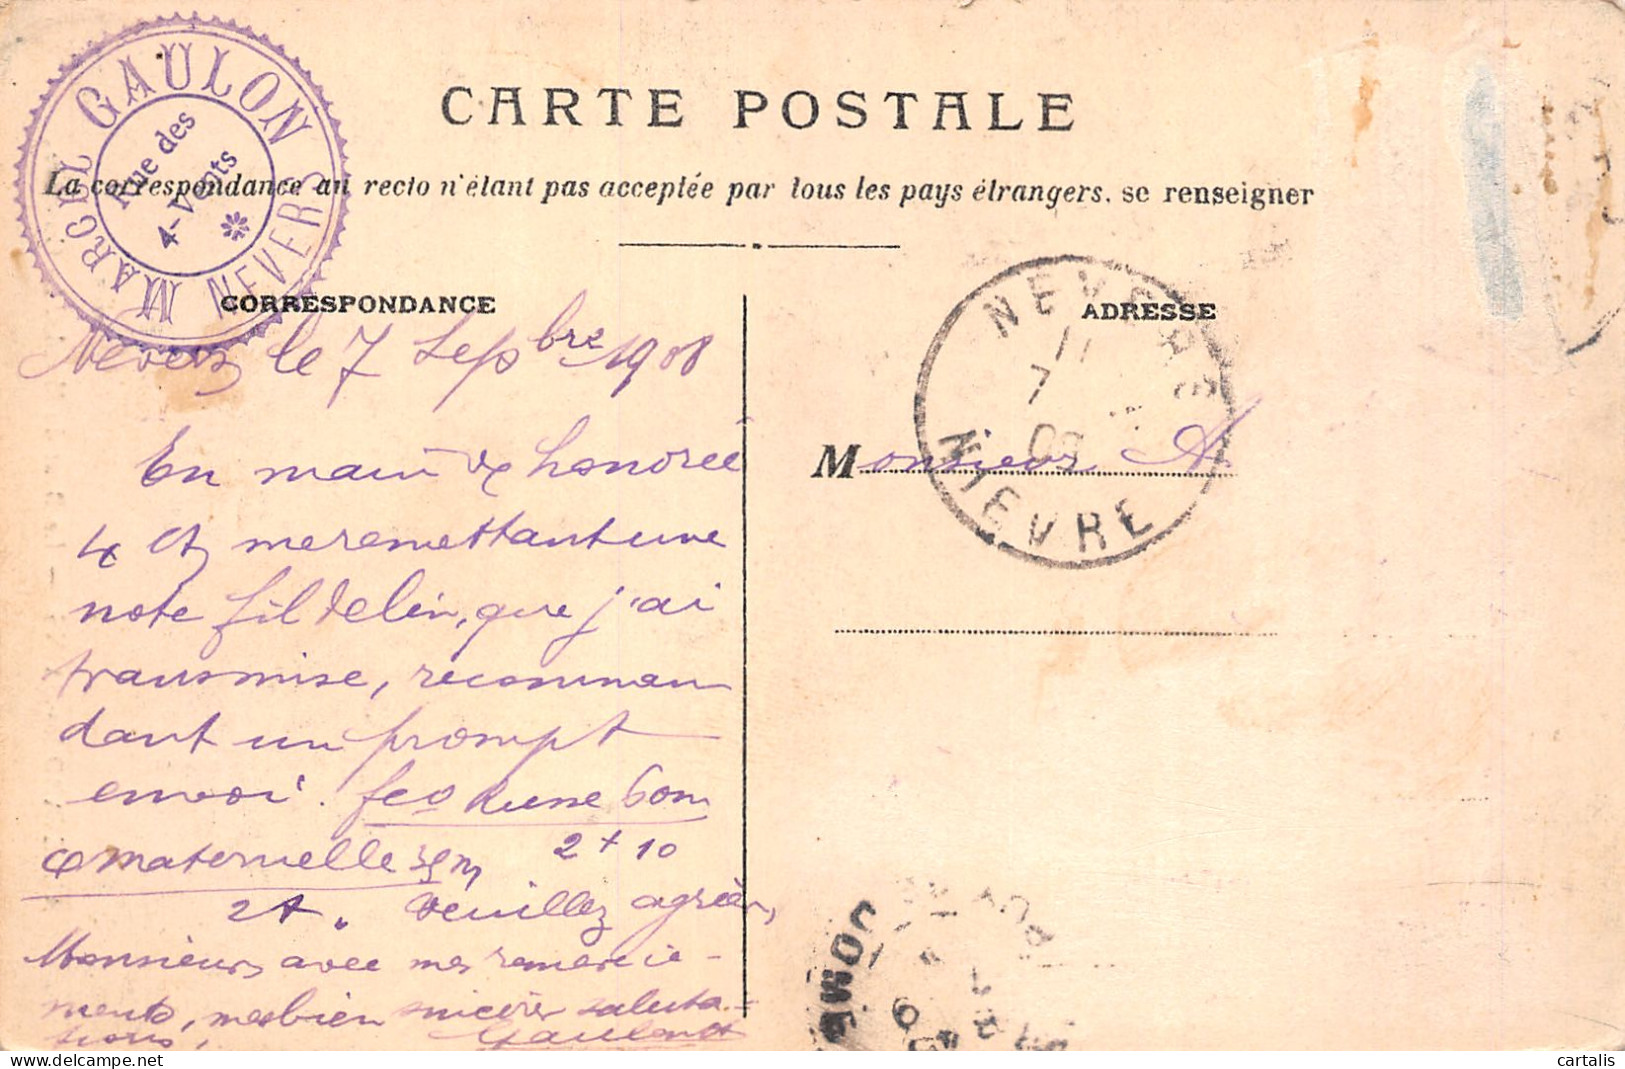 MARCEL GAULON
NEVERS
Rue des
4-Vents
CARTE POSTALE
La correspondance au recto n'étant pas acceptée par tous les pays étrangers, se renseigner
CORRESPONDANCE
Nevers le 7 Sepbre 1908
En main de honorée
4 ct me remettant une
note fil de lin, que j'ai
transmise, recomman
dant un prompt
envoi.
maternelle 2 + 10
Veuillez agréer,
Monsieur, avec mes remercie-
ments, mes bien sincères saluta-
tions,
ADRESSE
NEVERS
11
7
08
NIEVRE
Monsieur A
SOMME
cartalis